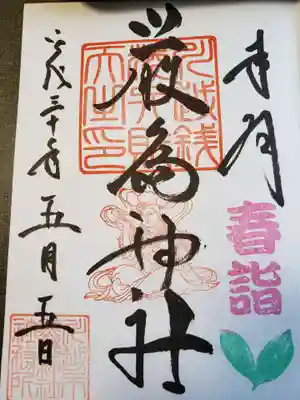 奉拝
春詣
川越銭
厳島神社
平成三十年五月五日